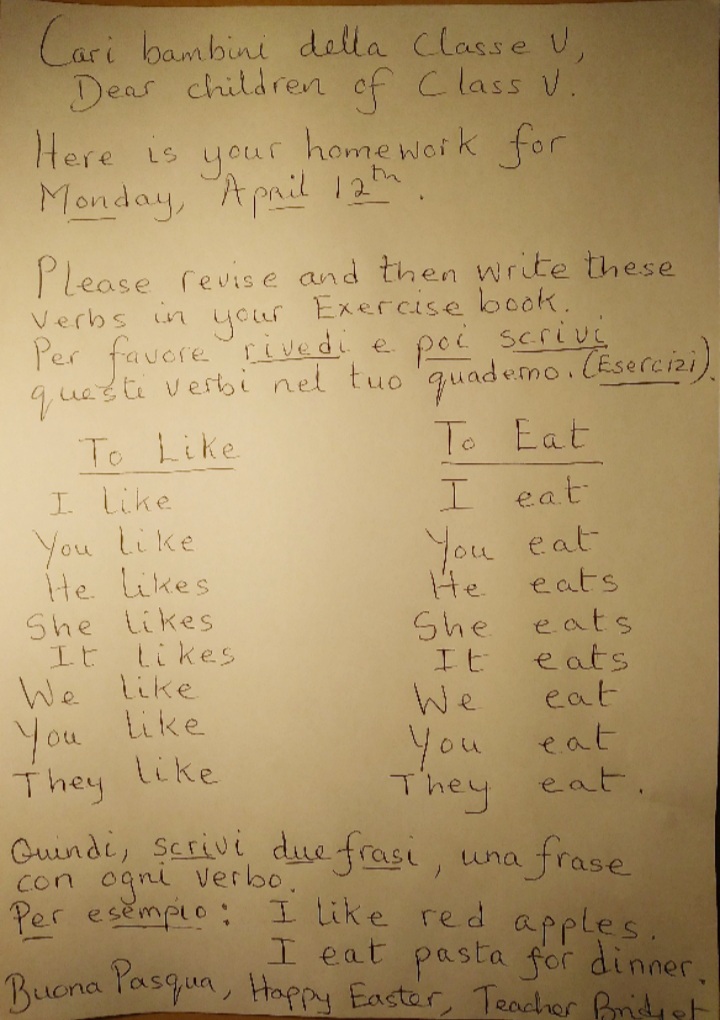 Cari bambini della Classe V,
Dear children of Class V.
Here is your homework for
Monday, April 12th.
Please revise and then write these
verbs in your Exercise book.
Per favore rivedi e poi scrivi
questi verbi nel tuo quaderno. (Esercizi).
To Like To Eat
I like I eat
You like You eat
He likes He eats
She likes She eats
It likes It eats
We like We eat
You like You eat
They like They eat.
Quindi, scrivi due frasi, una frase
con ogni verbo.
Per esempio: I like red apples.
I eat pasta for dinner.
Buona Pasqua, Happy Easter, Teacher Bridget